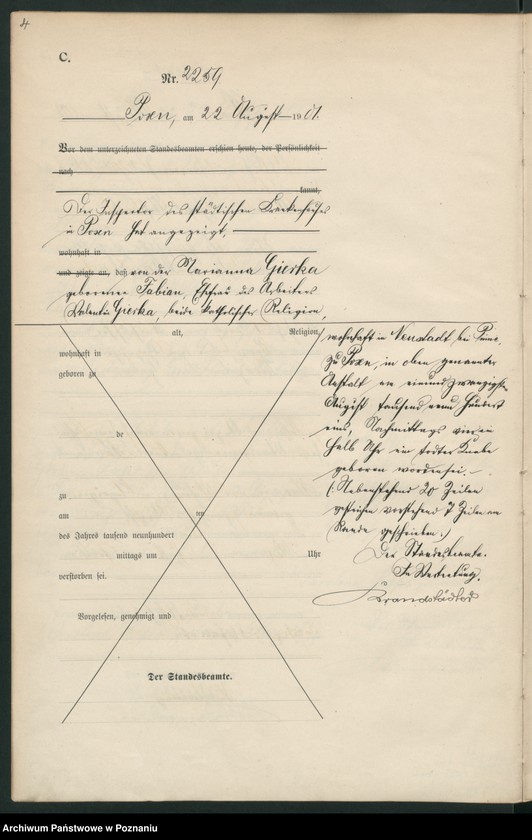 4
C.
Nr. 2259
Posen, am 22 August 1901.
Vor dem unterzeichneten Standesbeamten erschien heute, der Persönlichkeit
nach
kannt,
Der Inspector des städtischen Krankenhauses
in Posen hat angezeigt,
wohnhaft in
und zeigte an, daß von der Marianna Gierka
geborenen Fabian, Ehefrau des Arbeiters
Valentin Gierka, beide katholischer Religion,
alt, Religion,
wohnhaft in
geboren zu
de
zu
am
um
des Jahres tausend neunhundert
mittags um Uhr
verstorben sei.
Vorgelesen, genehmigt und
Der Standesbeamte.
wohnhaft in Neustadt bei Pinne,
zu Posen, in oben genannter
Anstalt am einundzwanzigsten
August tausend neun hundert
eins, Nachmittags um ein
halb Uhr ein todter Knabe
geboren worden sei.
(: Nebenstehend 20 Zeilen
gestrichen vorstehend 7 Zeilen am
Rande geschrieben.)
Der Standesbeamte.
In Vertretung.
Archiwum Państwowe w Poznaniu